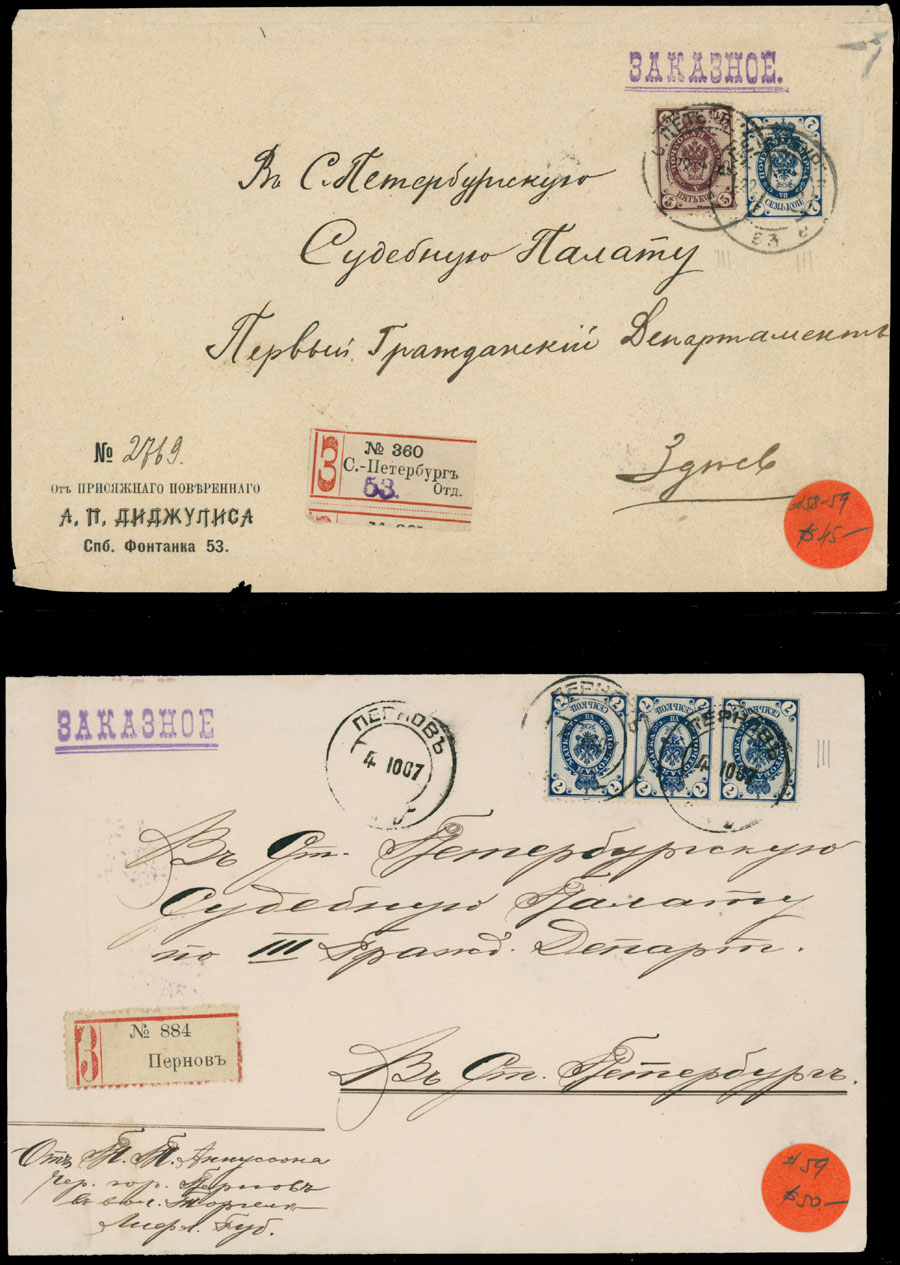 ЗАКАЗНОЕ.
7
ПЯТЬ КОП.
5
СЕМЬ КОП.
7
Въ С. Петербурскую
Судебную Палату
Первый Гражданскій Департаментъ
Здѣсь
№ 2769.
Отъ ПРИСЯЖНАГО ПОВѢРЕННАГО
А. П. ДИДЖУЛИСА
Спб. Фонтанка 53.
З
№ 360
С.-Петербургъ
53. Отд.
#58-59
$45-
ЗАКАЗНОЕ
ПЕРНОВЪ
4 10 07
ПЕРНОВЪ
4 10 07
СЕМЬ КОП.
7
Въ Ст. Петербургскую
Судебную Палату
по III Гражд. Департ.
Въ Ст. Петербургъ.
З
№ 884
Перновъ
Отъ
чр. гор. Перновъ
Лифл. Губ.
#59
$50.-